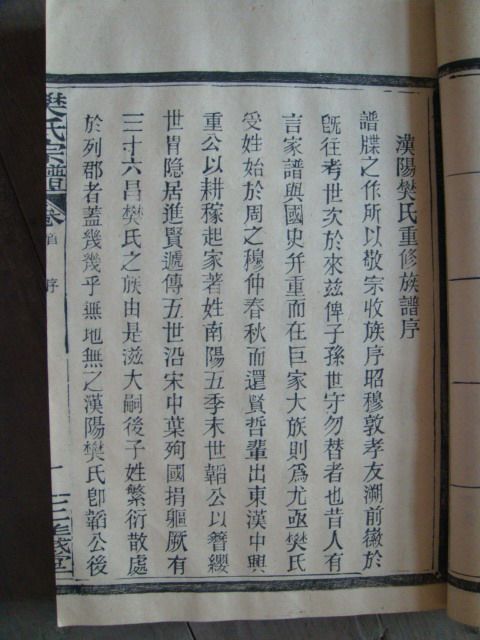 漢陽樊氏重修族譜序
譜牒之作所以敬宗收族序昭穆敦孝友溯前徽於
旣往考世次於來兹俾子孫世守勿替者也昔人有
言家譜與國史幷重而在巨家大族則爲尤亟樊氏
受姓始於周之穆仲春秋而還賢哲輩出東漢中興
重公以耕稼起家著姓南陽五季末世韜公以簪纓
世冑隐居進賢遞傳五世沿宋中葉殉國捐軀厥有
三十六昌樊氏之族由是滋大嗣後子姓繁衍散處
於列郡者蓋幾幾乎無地無之漢陽樊氏卽韜公後
樊氏宗譜 卷首 序 一